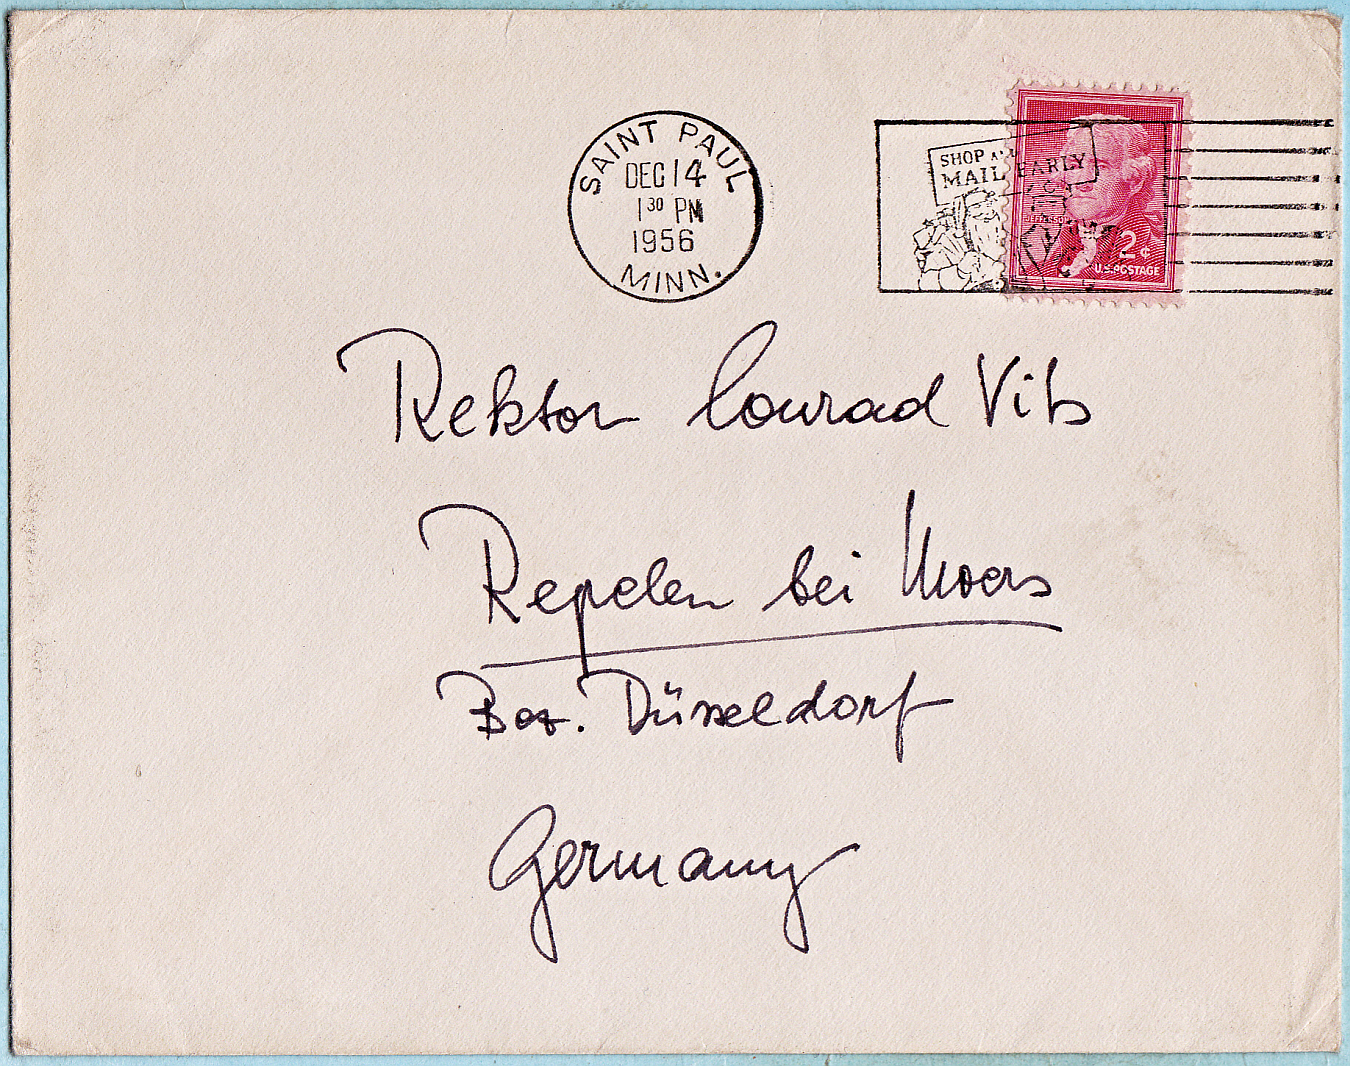 SAINT PAUL
DEC 14
1 30 PM
1956
MINN.
SHOP
MAIL EARLY
JEFFERSON
2¢
U.S. POSTAGE
Rektor Conrad Vits
Repelen bei Moers
Bez. Düsseldorf
Germany